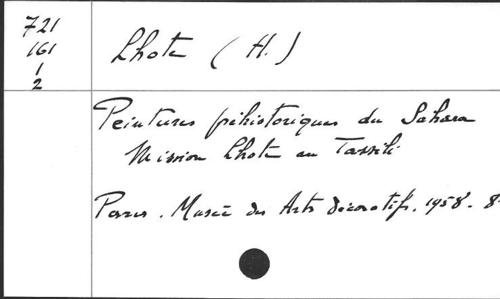 721
161
1
2
Lhote (H.)
Peintures préhistoriques du Sahara
Mission Lhote au Tassili
Paris. Musée des Arts décoratifs. 1958. 8